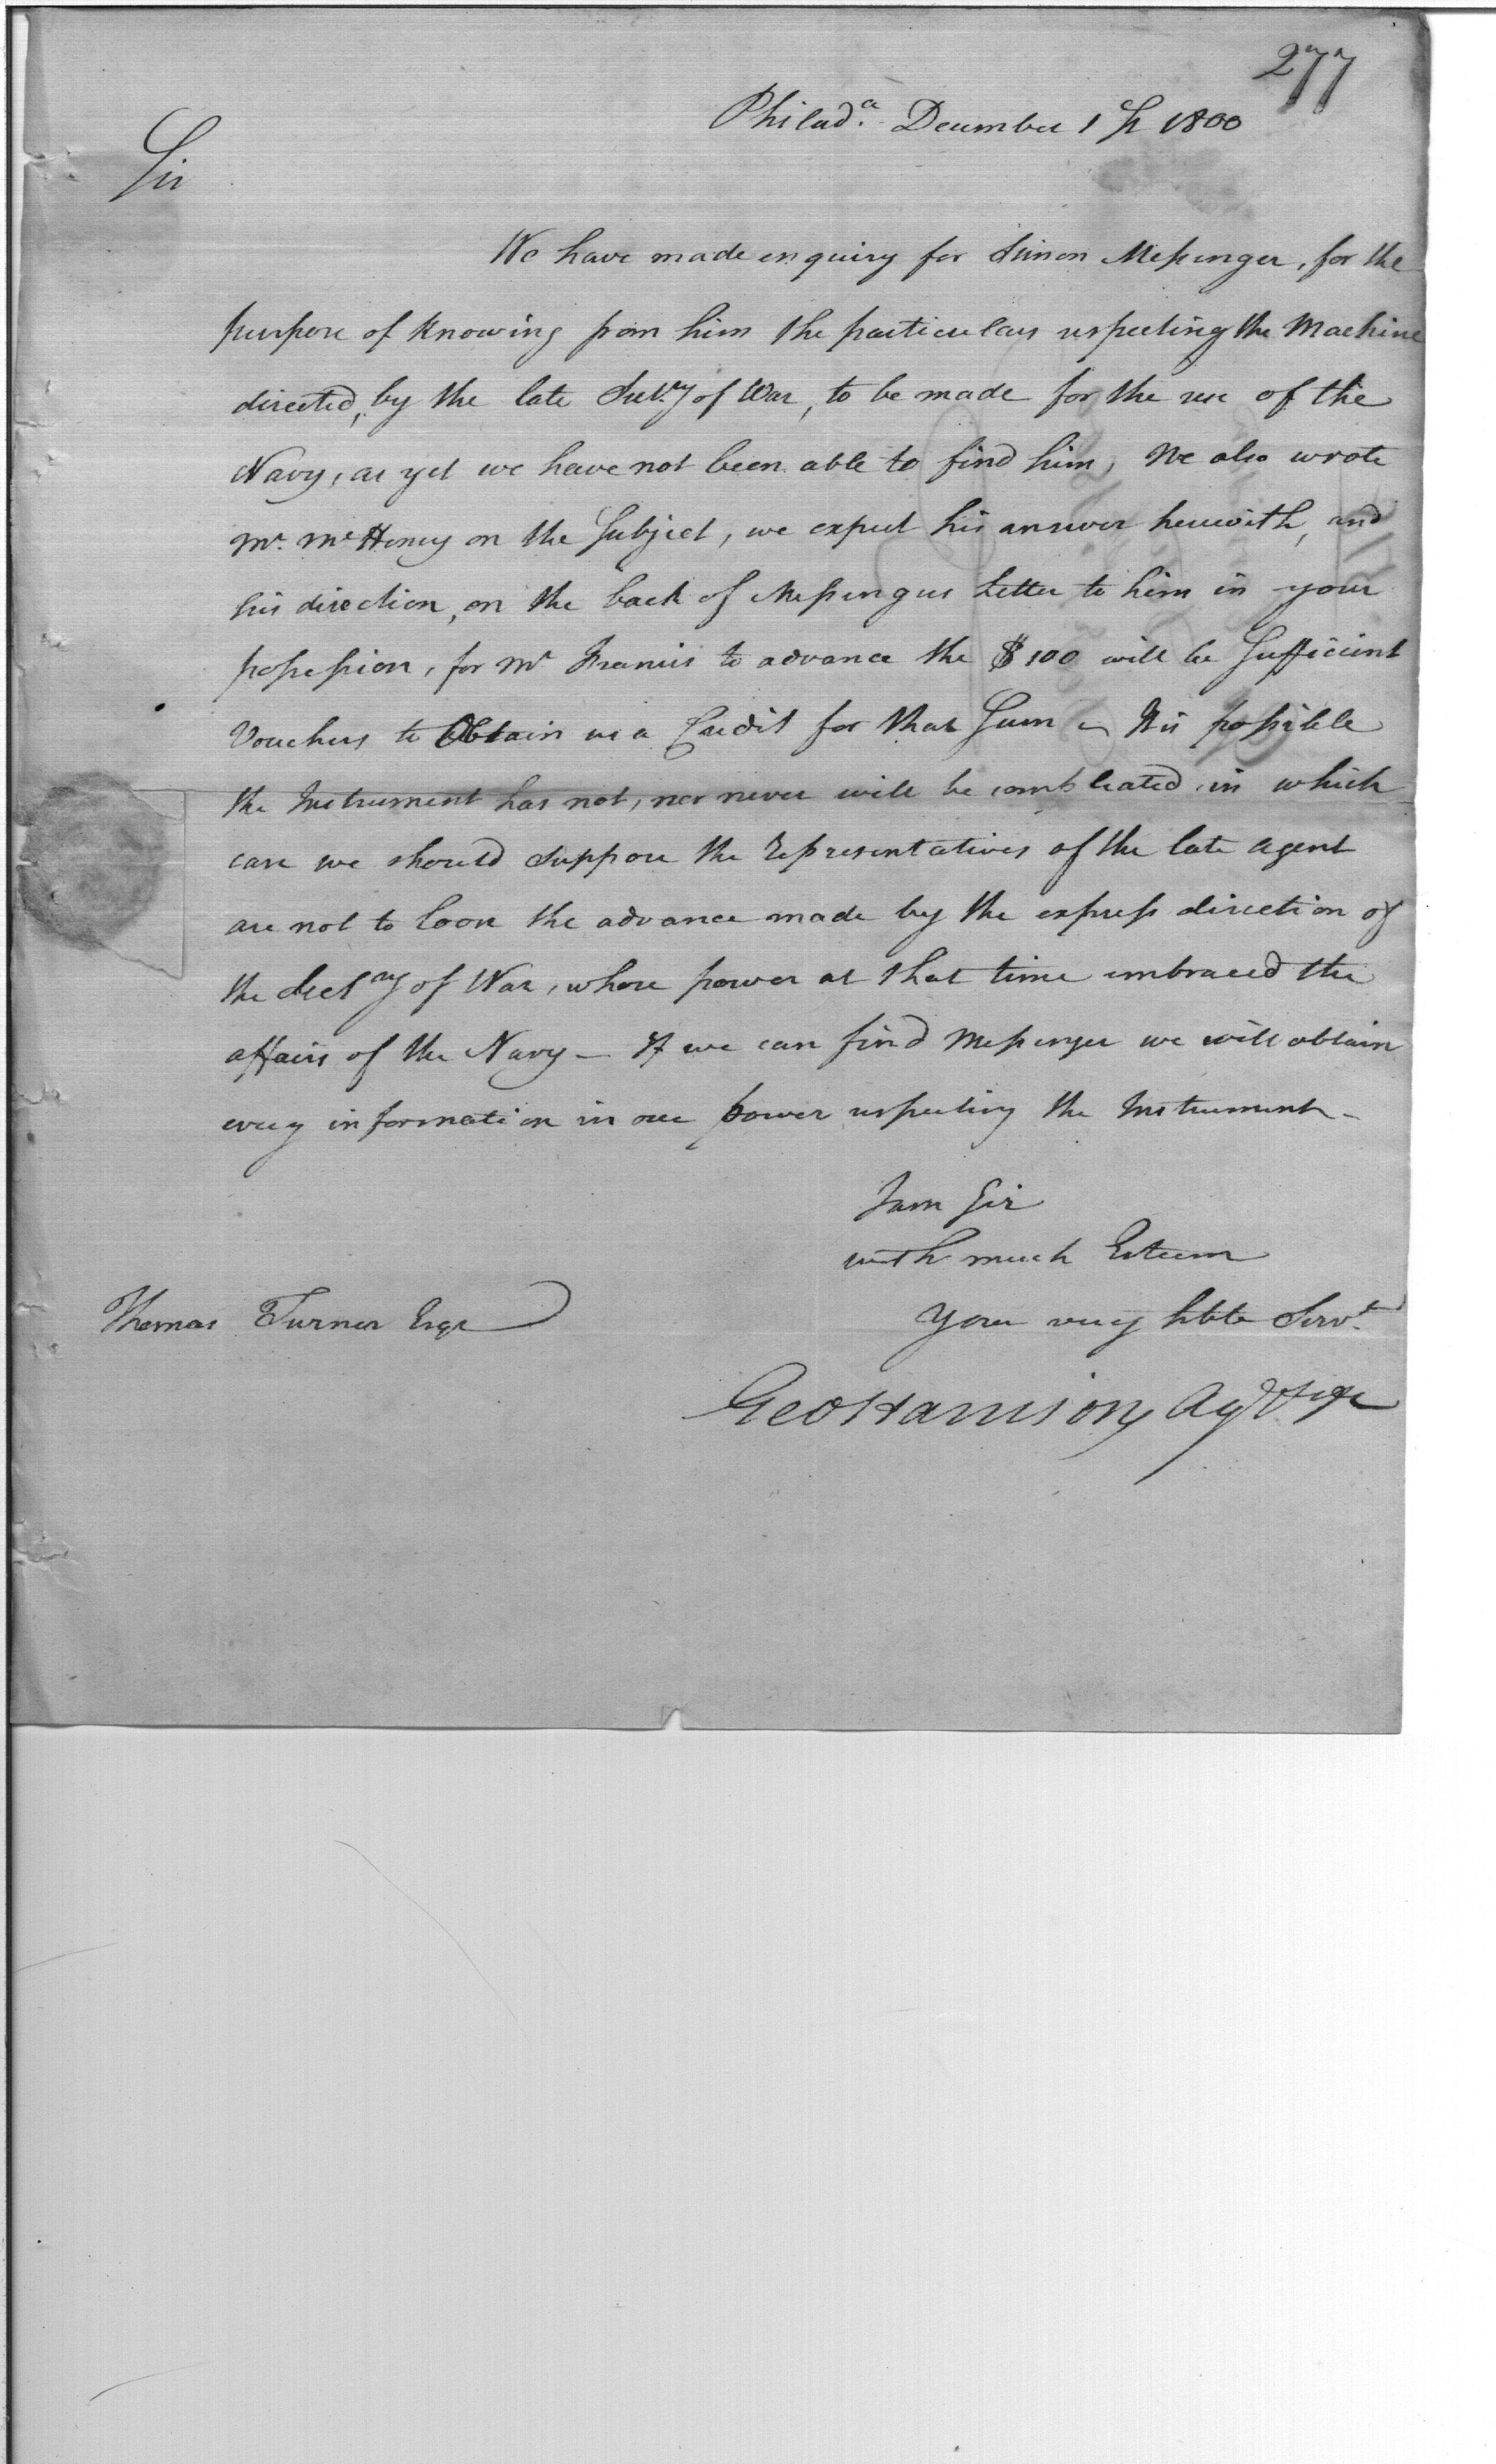 277
Philad.a December 1st 1800
Sir
We have made enquiry for Simon Messenger, for the
purpose of Knowing from him the particulars respecting the Machine
directed, by the late Secr.y of War, to be made for the use of the
Navy, as yet we have not been able to find him, We also wrote
Mr. McHenry on the Subject, we expect his answer herewith, and
his direction, on the back of Messengers Letter to him in your
possession, for Mr Francis to advance the $100 will be Sufficient
Vouchers to Obtain us a Credit for that Sum – It is possible
the Instrument has not, nor never will be compleated, in which
case we should suppose the Representatives of the late agent
are not to loose the advance made by the express direction of
the Secty of War, whose power at that time embraced the
affairs of the Navy – If we can find Messenger we will obtain
every information in our power respecting the Instrument –
I am Sir
with much Esteem
Your very hble Servt.
Thomas Turner Esqr
Geo Harrison Agt